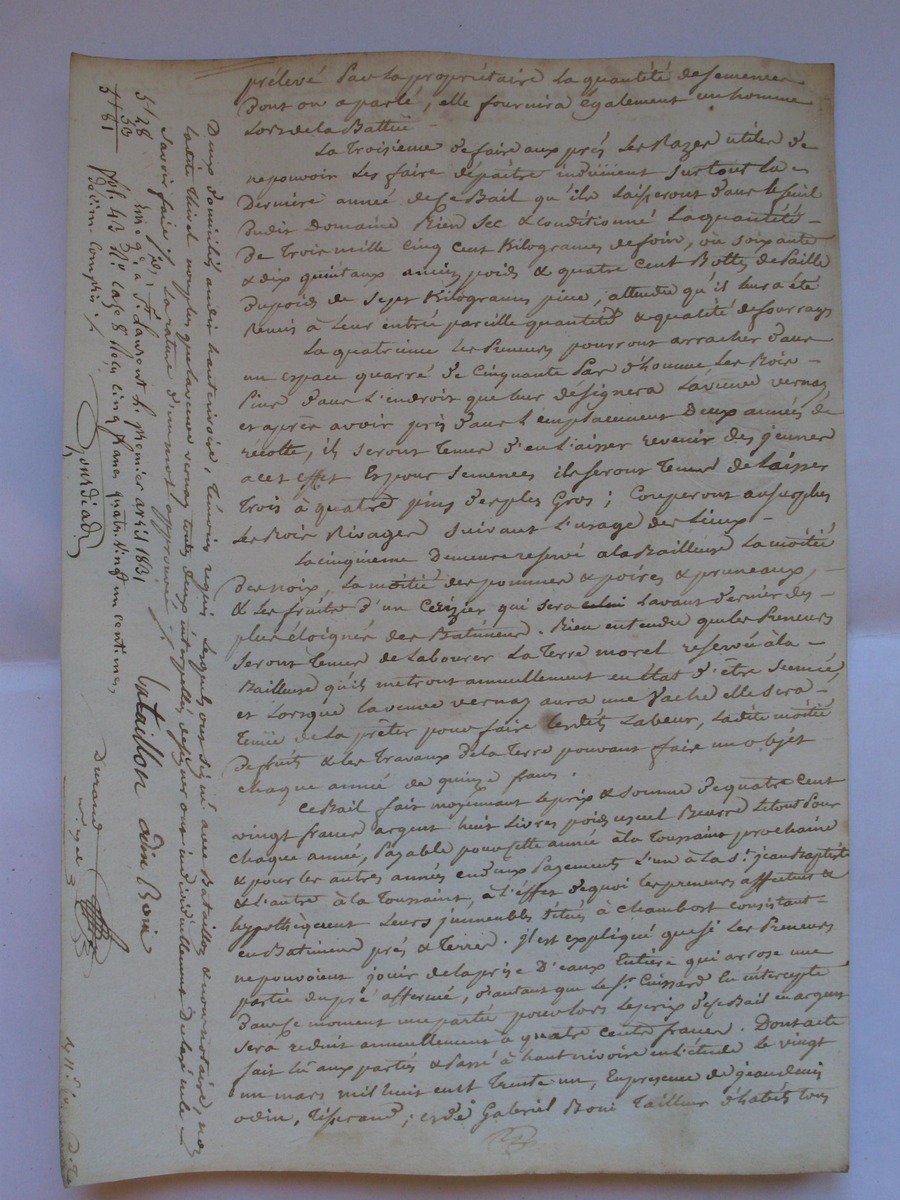 prélevé par la propriétaire la quantité de semences
dont on a parlé, elle fournira également un homme
Lors de la Batteri
La Troisieme de faire aux prés Les Razes utiles de
ne pouvoir Les faire dépaitre surtout La
Derniere année de ce Bail qu'ils Laisseront dans le fenil
dudit Domaine Bien Sec & conditionné La quantité
De Trois mille Cinq Cent Kilogrames de foin, ou soixante
& dix quintaux anciens poids & quatre cent Bottes de Paille
Du poids de sept Kilogrames piece, attendu qu'il leur a été
remis à Leur entrée pareille quantité & qualité de fourrages
La quatrieme les Preneurs pourront arracher dans
un espace quarré de Cinquante Pas d'homme, Les Bois
Pins dans L'endroit que leur désignera La veuve vernay
et après avoir pris dans L'emplacement Deux années de
récolte, ils seront Tenus d'en Laisser revenir des jeunes
à cet effet Et pour semences ils seront Tenus de Laisser
Trois à quatre pins des plus Gros ; Couperont au surplus
Les Bois Rivages Suivant L'usage des Lieux
La cinquieme Demeure reservé à la Bailleuse La moitié
des noix, La moitié des pommes & poires & pruneaux,
& Les fruits d'un Cérizier qui sera celui L'avant dernier des
plus éloignés des Batimens. Bien entendu que les Preneurs
seront Tenus de Labourer La Terre morel reservée à la
Bailleuse qu'ils mettront annuellement en état d'être semée,
et Lorsque la veuve vernay aura une Vache elle sera
Tenüe de La prêter pour faire lesdits Labeurs, La dite moitié
De fruits & les Travaux de la Terre pouvant faire un objet
chaque année de quinze francs.
Ce Bail fait moyennant le prix & somme de quatre cent
vingt francs argent huit Livres poids usuel Beurre Le tout Pour
chaque année, Payable pour cette année à la Toussaint prochaine
& pour les autres années en deux Payements L'un à la St. jean Baptiste
& L'autre à la Toussaint, à L'effet de quoi les preneurs affectent &
hypothèquent Leurs jmmeubles situés à chambost consistant
en Batimens prés & Terres. Il est expliqué que si Les Preneurs
ne pouvoient jouir de la prise D'eaux Entière qui arrose une
partie du pré affermé, d'autant que le Sr. Cuissard En intercepte
dans ce moment une partie pour lors Le prix de ce Bail en argent
sera réduit annuellement à quatre cents francs. Dont acte
fait Lû aux parties & Passé à haut rivoire en L'étude Le vingt
un mars mil huit cent Trente un, En presence de jean denis
odin, Tisserand ; et de Gabriel Boni Tailleur d'habits tous
Deux domiciliés audit hautrivoire, Témoins requis Lesquels ont signé avec Bataillon & nous notaire, non
Ladite Thivel non plus que la veuve vernay toutes deux interpellées de signer ont individuellement Déclaré ne le
savoir faire. La rature d'un mot approuvée
Bataillon odin Boni
Durand
St Laurent le premier avril 1831
fol. 43 No case 8 Reçu cinq francs quatre vingt un centimes
Décime Compris
5 / 28
53
5 / 81